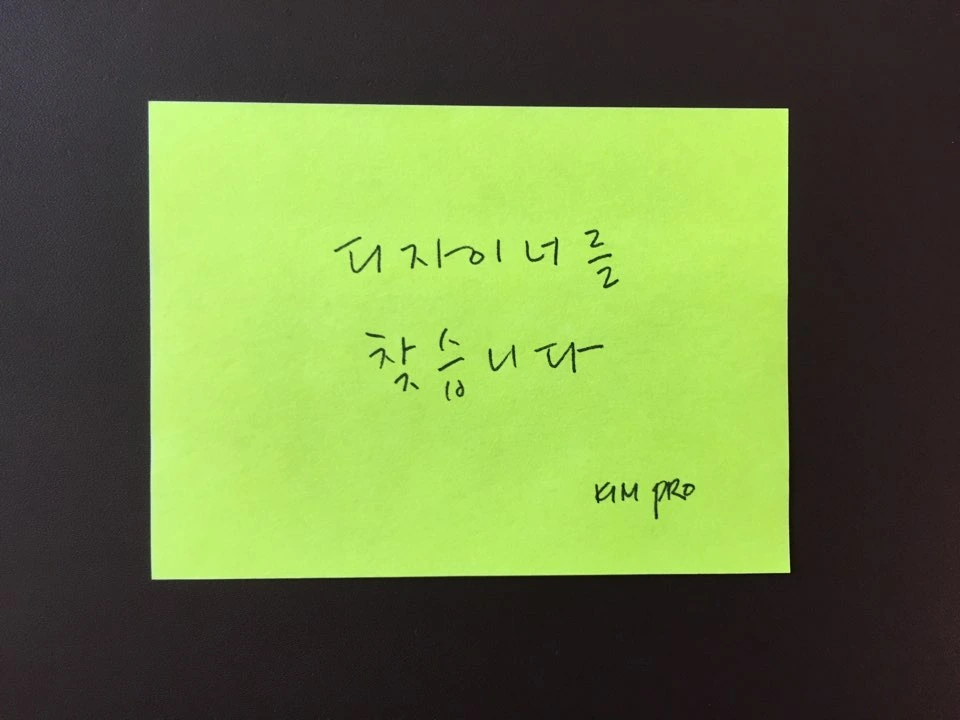 디자이너를
찾습니다
KIM PRO